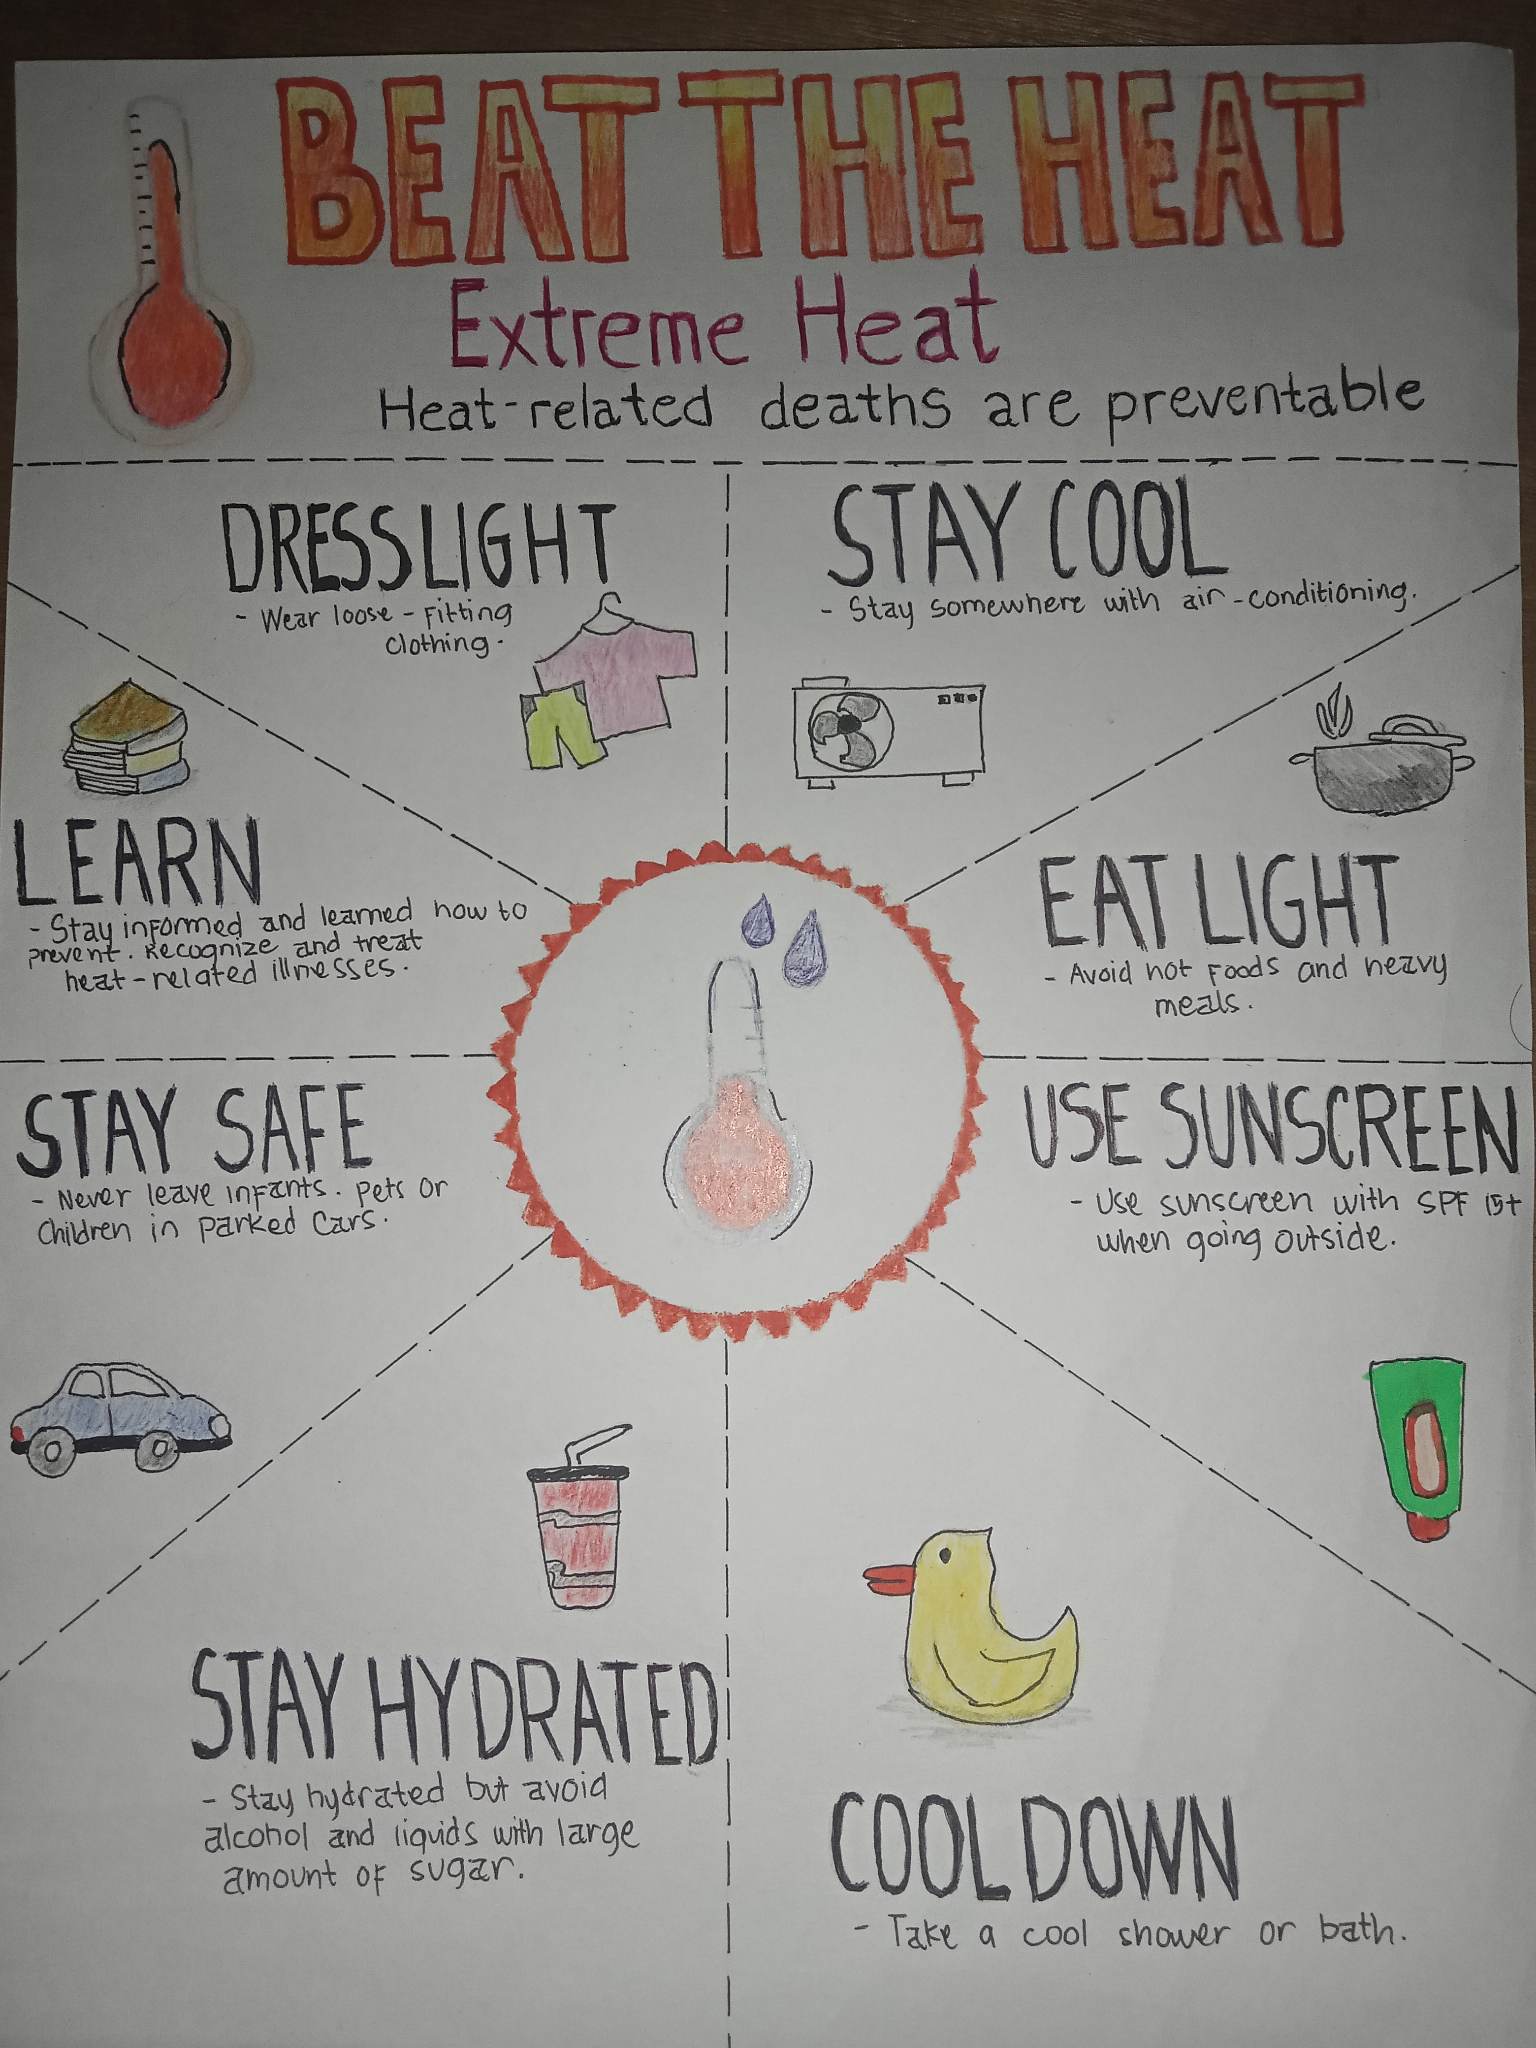 BEAT THE HEAT
Extreme Heat
Heat-related deaths are preventable
DRESS LIGHT
- Wear loose-fitting
clothing.
STAY COOL
- Stay somewhere with air-conditioning.
LEARN
- Stay informed and learned how to
prevent. Recognize and treat
heat-related illnesses.
EAT LIGHT
- Avoid hot foods and heavy
meals.
STAY SAFE
- Never leave infants. pets or
children in parked cars.
USE SUNSCREEN
- Use sunscreen with SPF 15+
when going outside.
STAY HYDRATED
- Stay hydrated but avoid
alcohol and liquids with large
amount of sugar.
COOL DOWN
- Take a cool shower or bath.